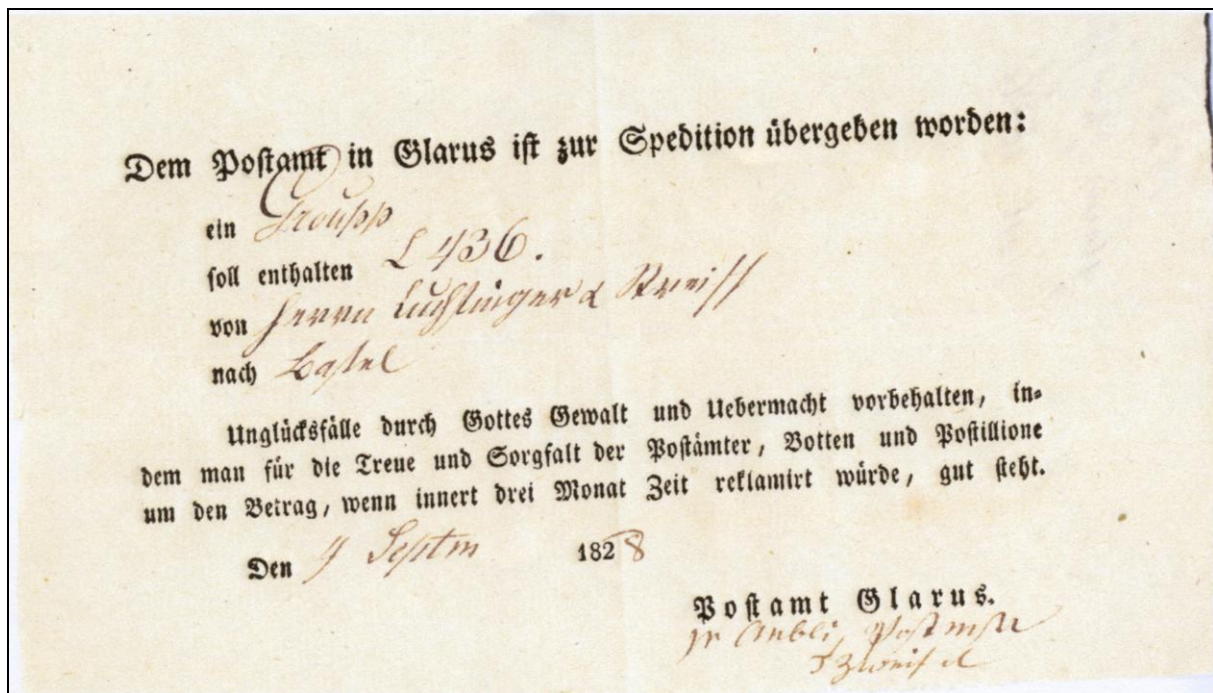 Dem Postamt in Glarus ist zur Spedition übergeben worden:
ein Groupp
soll enthalten L 436.
von Herrn Luchsinger & Streiff
nach Basel
Unglücksfälle durch Gottes Gewalt und Uebermacht vorbehalten, in=
dem man für die Treue und Sorgfalt der Postämter, Botten und Postillione
um den Betrag, wenn innert drei Monat Zeit reklamirt würde, gut steht.
Den 9 Septm 1828
Postamt Glarus.
pr Aebli, Postmstr
Zweifel